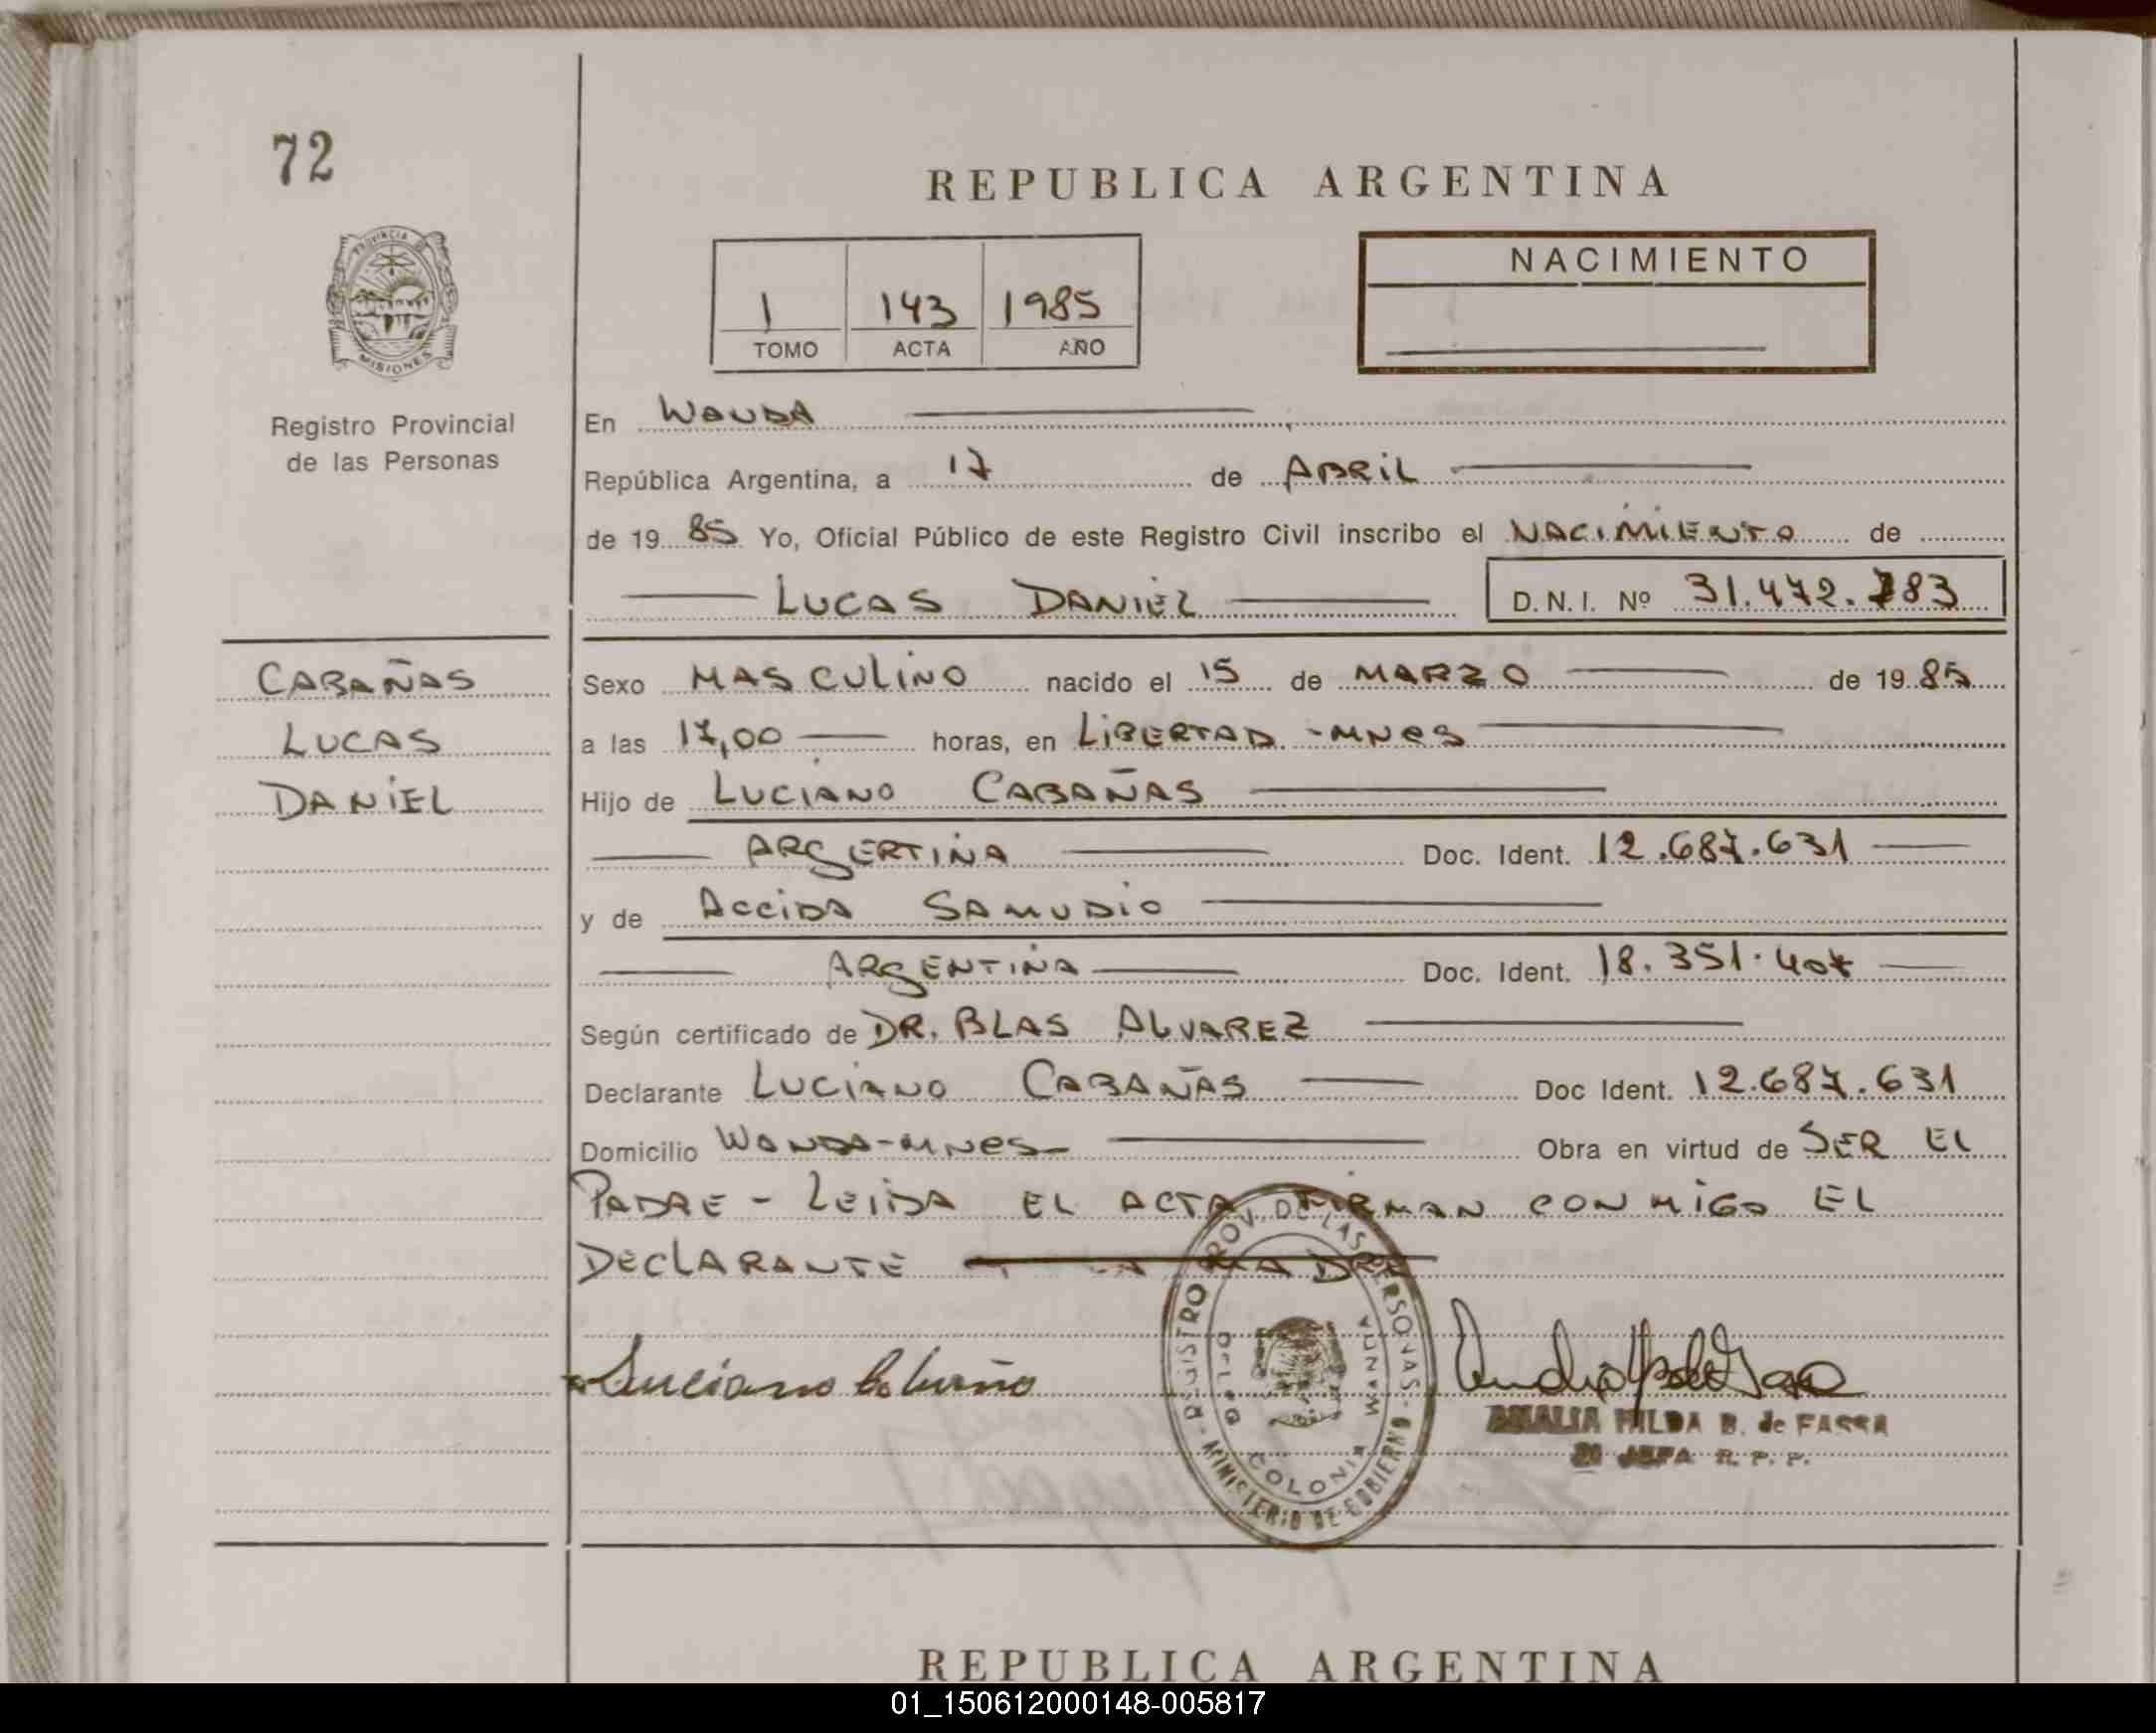 72
REPUBLICA ARGENTINA
PROVINCIA DE
MISIONES
Registro Provincial
de las Personas
1 143 1985
TOMO ACTA AÑO
NACIMIENTO
En WANDA
República Argentina, a 17 de ABRIL
de 19 85 Yo, Oficial Público de este Registro Civil inscribo el NACIMIENTO de
LUCAS DANIEL D.N.I. Nº 31.472.783
CABAÑAS
LUCAS
DANIEL
Sexo MASCULINO nacido el 15 de MARZO de 19 85
a las 17,00 horas, en LIBERTAD - MNES
Hijo de LUCIANO CABAÑAS
ARGERTINA Doc. Ident. 12.687.631
y de SAMUDIO
ARGENTINA Doc. Ident. 18.351.407
Según certificado de DR. BLAS ALVAREZ
Declarante LUCIANO CABAÑAS Doc Ident. 12.687.631
Domicilio WANDA-MNES Obra en virtud de SER EL
PADRE - LEIDA EL ACTA FIRMAN CONMIGO EL
DECLARANTE LA MADRE
REGISTRO PROV. DE LAS PERSONAS - MINISTERIO DE GOBIERNO
DELEG COLONIA WANDA
Luciano
AMALIA HILDA B. de FASSA
JEFA R. P. P.
REPUBLICA ARGENTINA
01_150612000148-005817